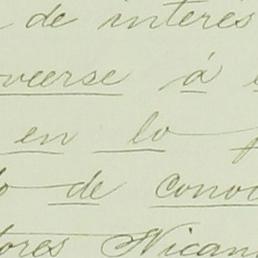 de interés
oveerse á
en lo
de conoc
tores Nican